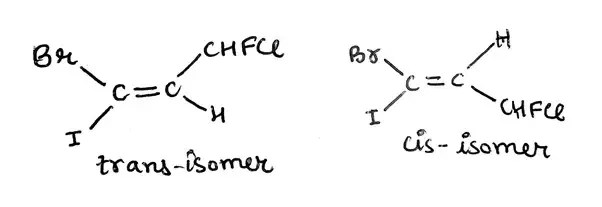 Br CHFCl
C=C
I H
trans-isomer
Br H
C=C
I CHFCl
cis-isomer